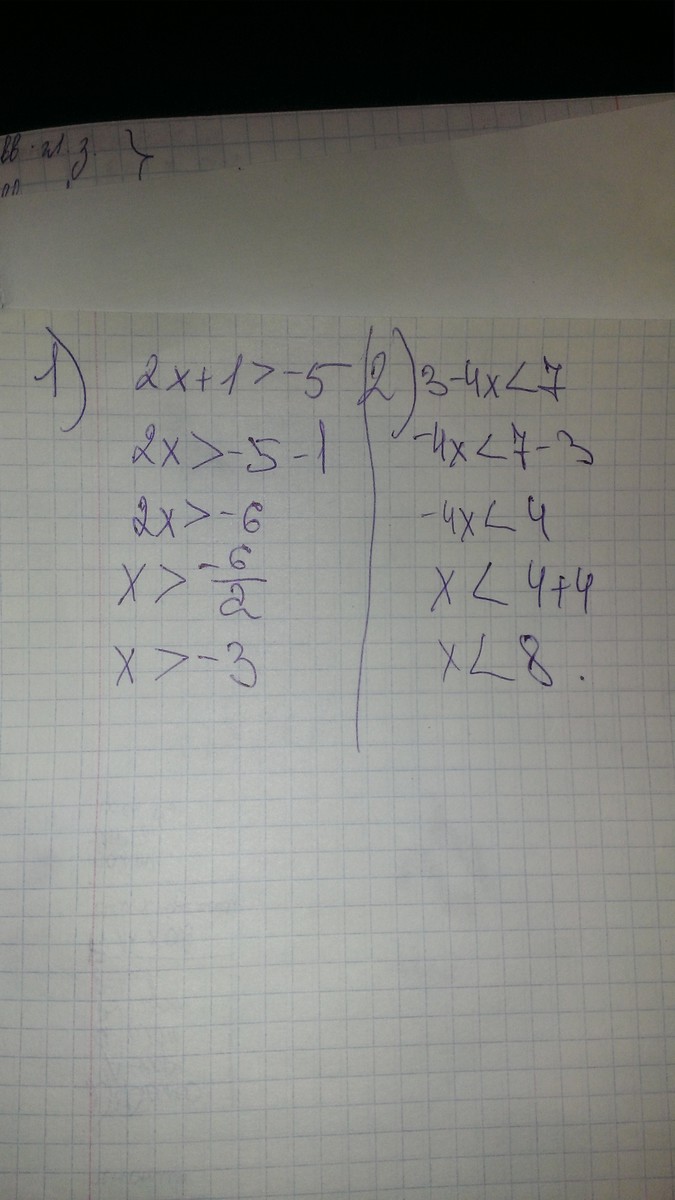 1) 2x+1>-5
2x>-5-1
2x>-6
x>-6/2
x>-3
2) 3-4x<7
-4x<7-3
-4x<4
x<4+4
x<8.